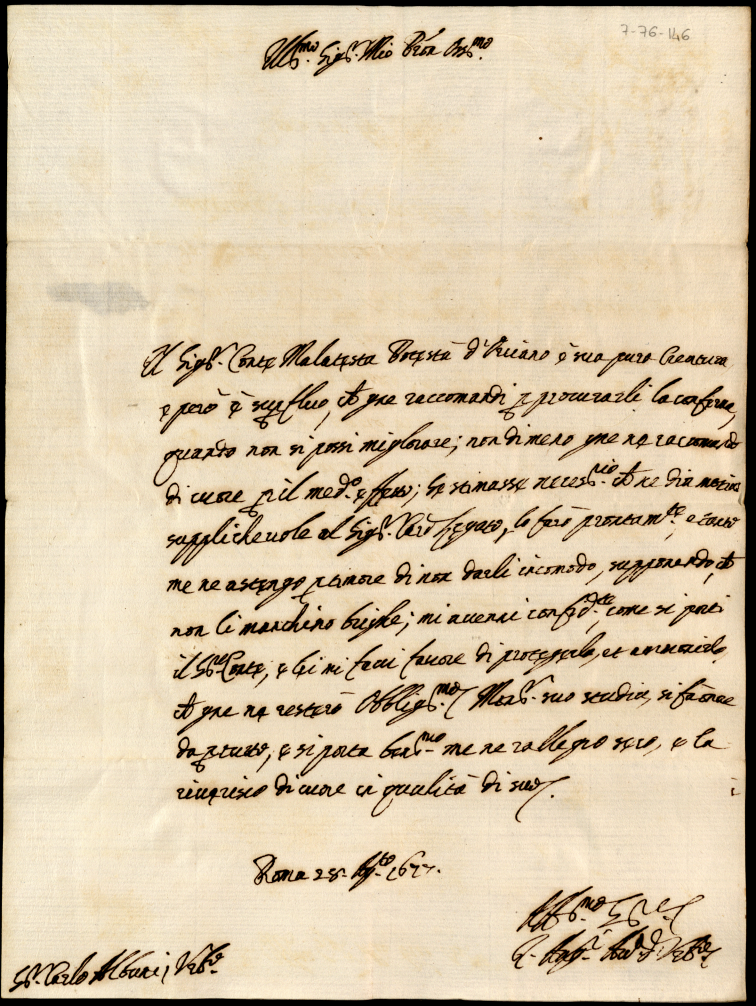 7-76-146
Ill.mo Sig.r Mio Pron Oss.mo
Il Sig.r Conte Malatesta Potestà d' è sua pura Creatura
e però è superfluo, ch gne raccomandi p procurarli la conferma,
quando non si possi migliorare; non di meno gne ne racomando
di cuore p il med.o effetto; se stimasse necess.rio ch ne dia
supplicheuole al Sig.r Card Legato, lo farò prontam.te, e
me ne astengo p timore di non darli incomodo, supponendo, ch
non li manchino brighe; mi auerni confid.te, come si porti
il S.r Conte, e lei mi facci fauore di proteggerlo, et ammonirlo,
ch gne ne resterò Obblig.mo Mons.r suo studia, si fà onore
da p tutto, e si porta ben.mo me ne rallegro seco, e la
riuerisco di cuore in qualità di
Roma 28. Ag.to 1677.
Aff.mo
S.r Carlo Albani, Urb.o